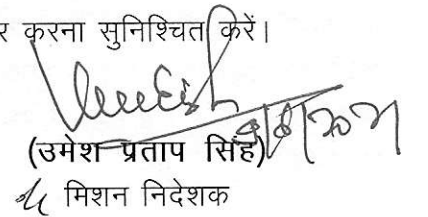 र करना सुनिश्चित करें।
Umesh
(उमेश प्रताप सिंह)
मिशन निदेशक